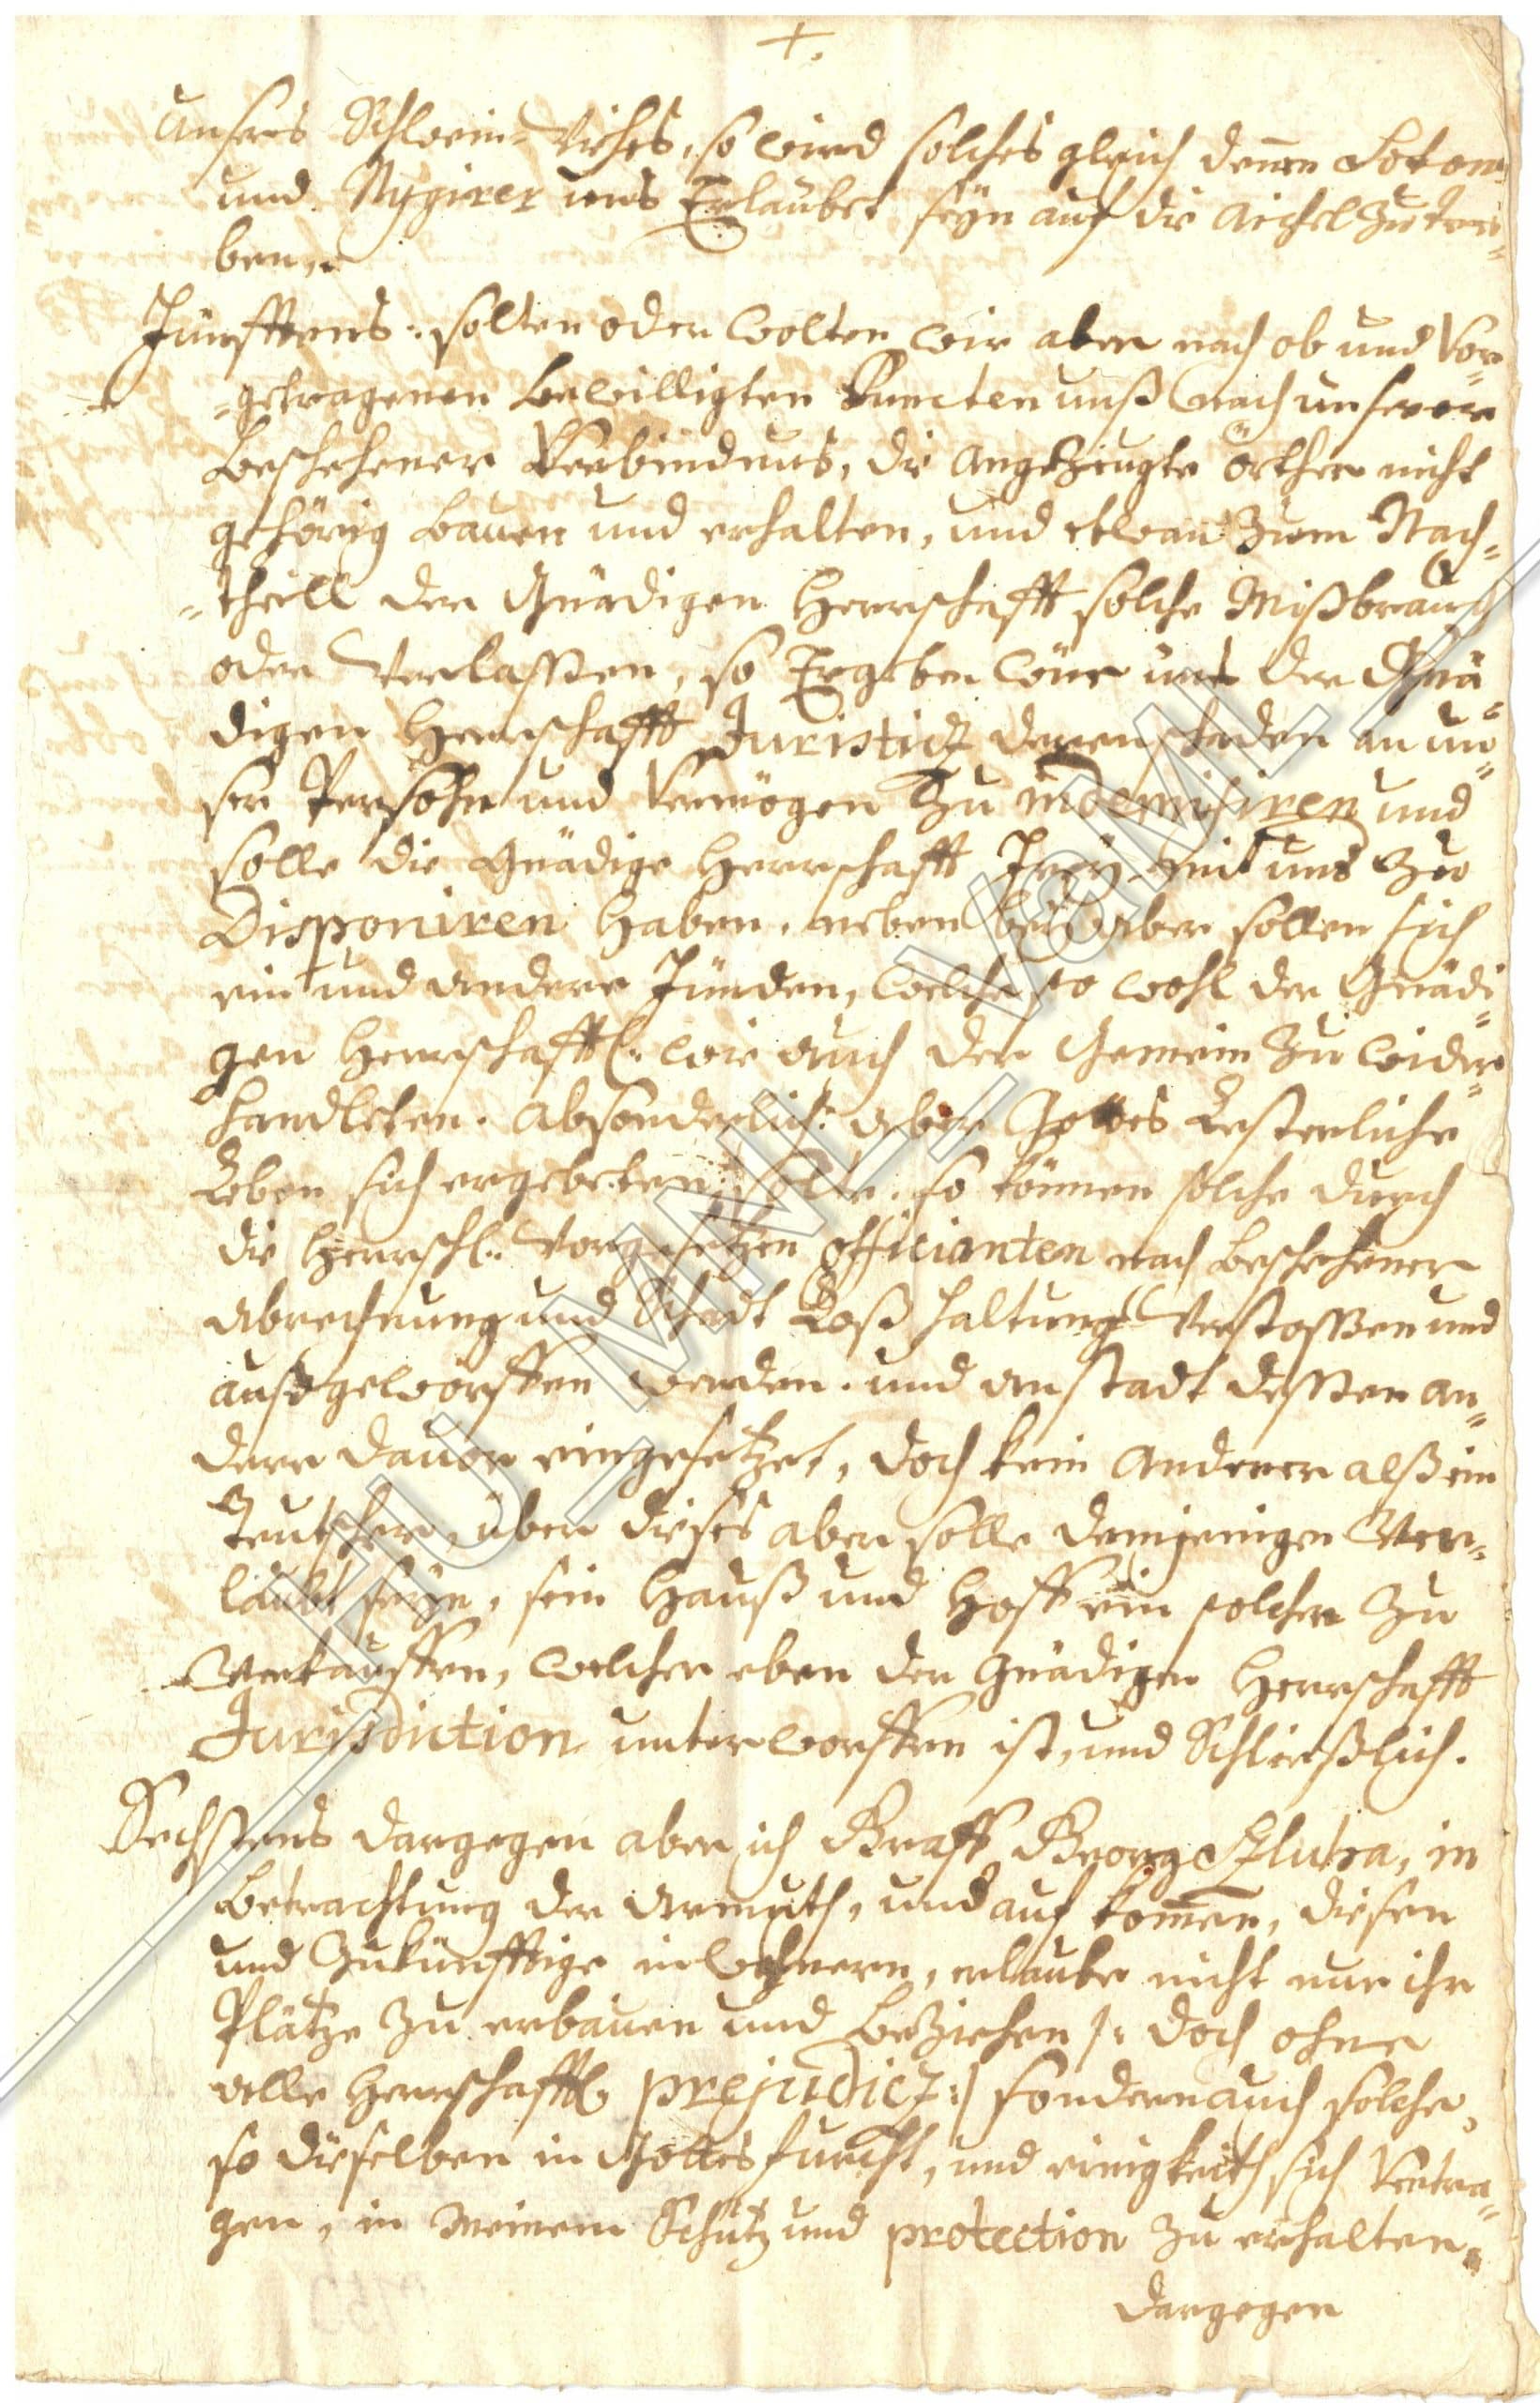 +.
Unsers Schwein-Viches, so wird solches gleich denen
und Nÿgirer uns Erlaubet seÿn auf die Aichel zu trei=
ben,.
Fünfftens: solten oder wolten wir aber nach ob und Vor=
=getragenen bewilligten Puncten unß nach unserer
beschehener Verbindnus, die angezeugte örther nicht
gehörig bauen und erhalten, und etwan zum Nach=
=theill der Gnädigen Herrschafft solche Mißbrauch
oder Verlassen, so Ergeben wür uns der Gnä=
digen Herrschafft Juristicz deren schaden an un=
ser Persohn und Vermögen zu indemisiren und
solle die Gnädige Herrschafft Freÿ mit uns zu
Disponiren haben, neben beÿ aber sollen sich
ein und andere Fünden, welche so wohl der Gnädi=
gen Herrschafftl: wie auch der Gemein zu wider=
handleten. absonderlich: aber Gottes Lesterliche
Leben sich ergebeten solte. so können solche durch
die Herrschl: Vorgesetzen officianten nach beschehener
abrechnung und Schadt Loß haltung Verstossen und
außgeworffen werden. und anstadt dessen an=
dere davor eingesetzet, doch kein Anderer alß ein
Teutscher, über dieses aber solle demjenigen Ver=
laubt seÿn, sein Hauß und Hoff ein solcher zu
Verkauffen, welcher eben der Gnädigen Herrschafft
Jurisdiction unterworffen ist, und Schließlich.
Sechstens dargegen aber ich Graff Georg in
betrachtung der Armuth, und auf kommen, diesen
und Zukünfftige inwohnern, erlaube nicht nur ihr
Plätze zu erbauen und beziehen /: doch ohne
alle Herrschafftl. prejudicz :/ sondern auch solche,
so dieselben in Gottesfurcht, und einigkeith sich Vertra=
gen, in meinem Schutz und protection zu erhalten.
Dargegen
HU_MNL_VaML_I